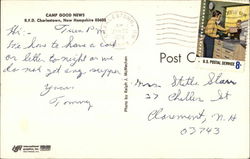 CAMP GOOD NEWS
R.F.D. Charlestown, New Hampshire 03603
Hi:- Tues P.M.
We have to have a card
or letter to night or we
do not get any supper.
Yours
Tommy
Post C
U.S. POSTAL SERVICE 8c
Photo by Ralph J. McMahon
Mrs. Stella Starr
27 Chellis St
Claremont, N.H
03743